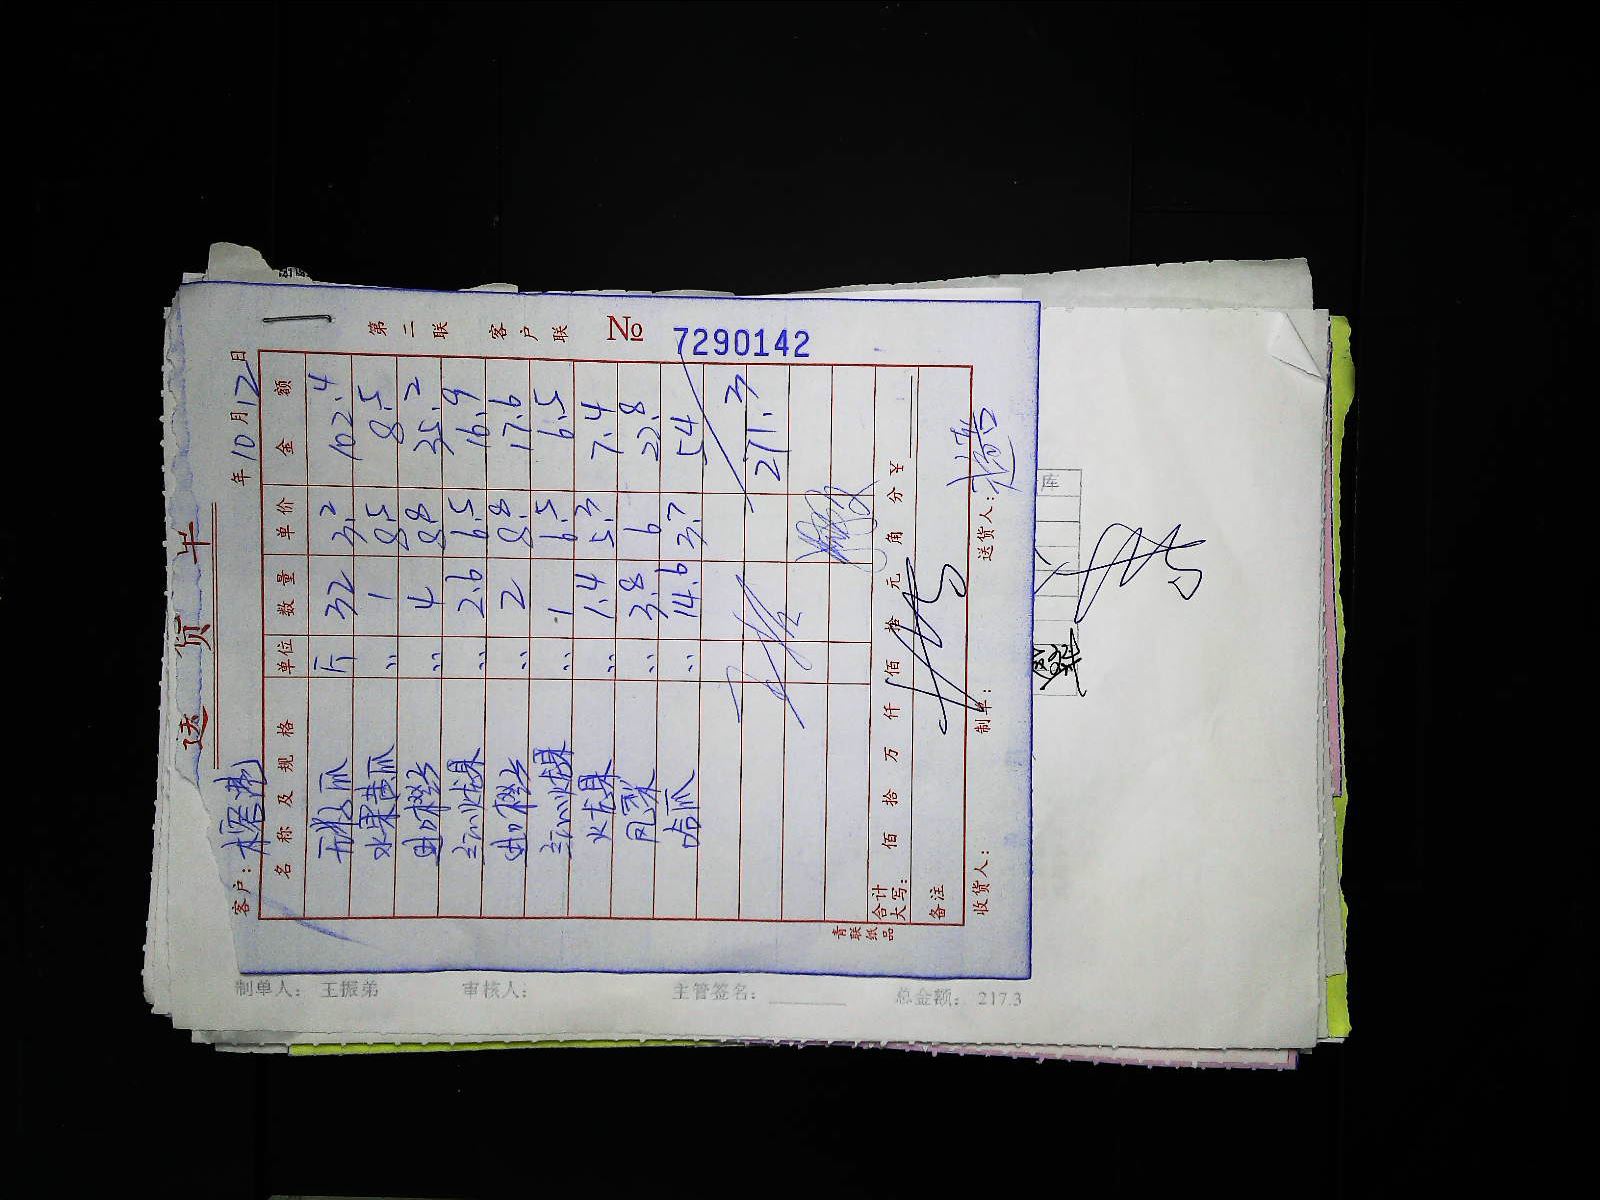 送货单
第二联 客户联 № 7290142
客户: 年10月12日
名称及规格 单位 数量 单价 金额
斤 32 3.2 102.4
水果黄瓜 〃 1 8.5 8.5
〃 4 8.8 35.2
红心火龙果 〃 2.6 6.5 16.9
〃 2 8.8 17.6
红心火龙果 〃 1 6.5 6.5
火龙果 〃 1.4 5.3 7.4
凤梨 〃 3.8 6 22.8
哈瓜 〃 14.6 3.7 54
271.3
合计大写: 佰 拾 万 仟 佰 拾 元 角 分 ¥
备注
收货人: 制单: 送货人:
青联纸品
库
制单人: 王振弟 审核人: 主管签名: 总金额: 217.3